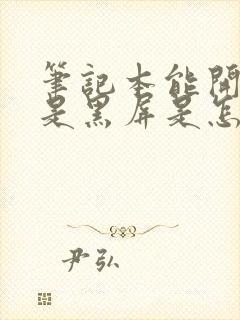 筆記本能開
是黑屏是怎
尹弘